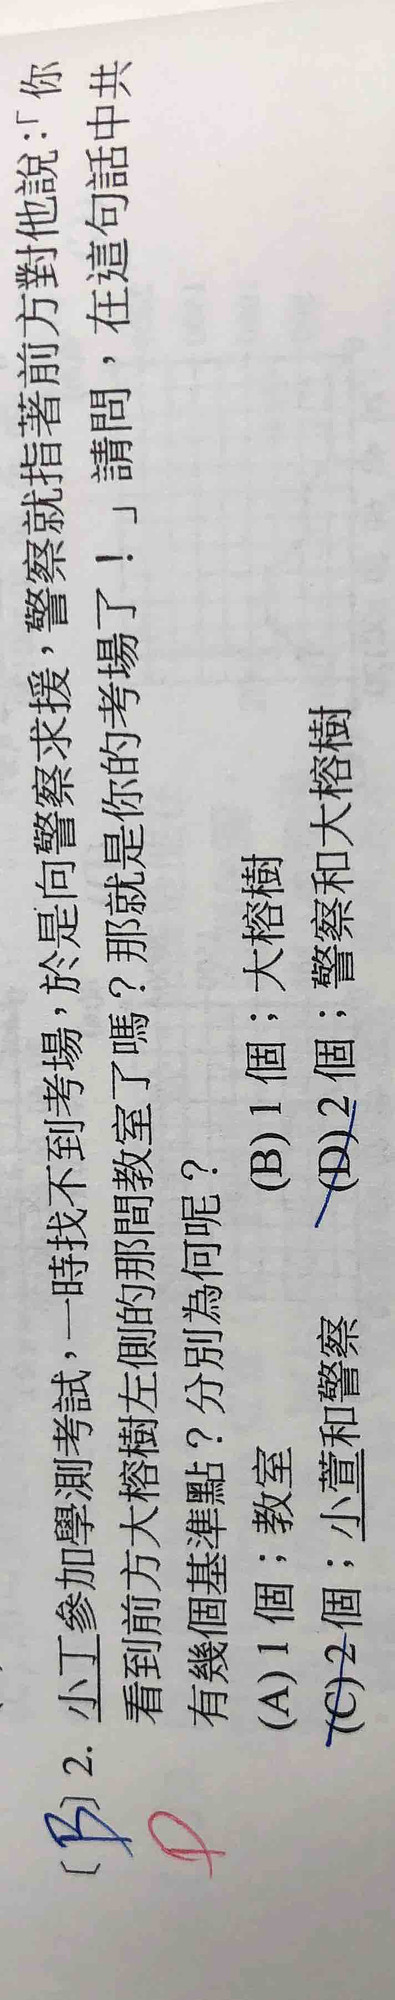 (B) 2. 小丁參加學測考試，一時找不到考場，於是向警察求援，警察就指著前方對他說：「你
D
看到前方大榕樹左側的那間教室了嗎？那就是你的考場了！」請問，在這句話中共
有幾個基準點？分別為何呢？
(A) 1 個；教室 (B) 1 個；大榕樹
(C) 2 個；小萱和警察 (D) 2 個；警察和大榕樹